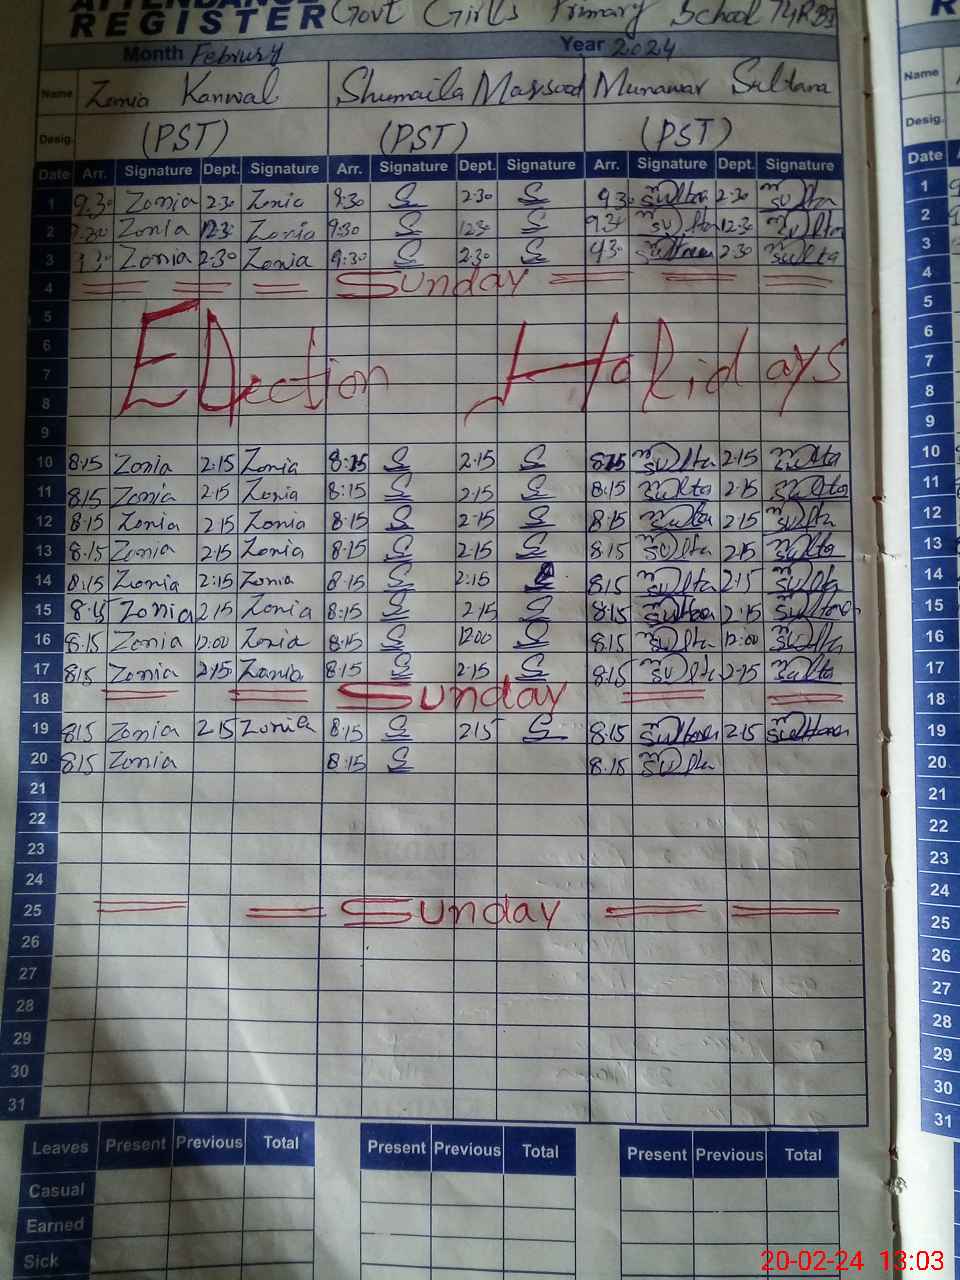 ATTENDANCE
REGISTER Govt Girls Primary School 74RB
Month Februry Year 2024
Name Zonia Kanwal Shumaila Maqsood Munawar Sultana
Desig. (PST) (PST) (PST)
Date Arr. Signature Dept. Signature Arr. Signature Dept. Signature Arr. Signature Dept. Signature
1 9.30 Zonia 2.30 Zonia 9:30 S 2:30 S 9.30 Sultana 2.30 Sulta
2 9.30 Zonia 12.30 Zonia 9:30 S 12:30 S 9.30 Sulta 12.30 Sulta
3 9.30 Zonia 2.30 Zonia 9:30 S 2.30 S 9.30 Sultana 2.30 Sulta
4 Sunday
5
6
7 Election Holidays
8
9
10 8.15 Zonia 2.15 Zonia 8:15 S 2.15 S 8.15 Sulta 2.15 Sulta
11 8.15 Zonia 2.15 Zonia 8:15 S 2.15 S 8.15 Sulta 2.15 Sulta
12 8.15 Zonia 2.15 Zonia 8.15 S 2.15 S 8.15 Sulta 2.15 Sulta
13 8.15 Zonia 2.15 Zonia 8.15 S 2.15 S 8.15 Sulta 2.15 Sulta
14 8.15 Zonia 2:15 Zonia 8.15 S 2:15 S 8.15 Sulta 2.15 Sulta
15 8.15 Zonia 2.15 Zonia 8:15 S 2.15 S 8.15 Sultana 2.15 Sultana
16 8.15 Zonia 12:00 Zonia 8:15 S 12:00 S 8.15 Sulta 12:00 Sulta
17 8.15 Zonia 2.15 Zonia 8.15 S 2.15 S 8.15 Sulta 2.15 Sulta
18 Sunday
19 8.15 Zonia 2.15 Zonia 8.15 S 2.15 S 8.15 Sultana 2.15 Sultana
20 8.15 Zonia 8.15 S 8.15 Sulta
21
22
23
24
25 Sunday
26
27
28
29
30
31
Leaves Present Previous Total Present Previous Total Present Previous Total
Casual
Earned
Sick
R
Name
Desig.
Date
1
2
3
4
5
6
7
8
9
10
11
12
13
14
15
16
17
18
19
20
21
22
23
24
25
26
27
28
29
30
31
20-02-24 13:03